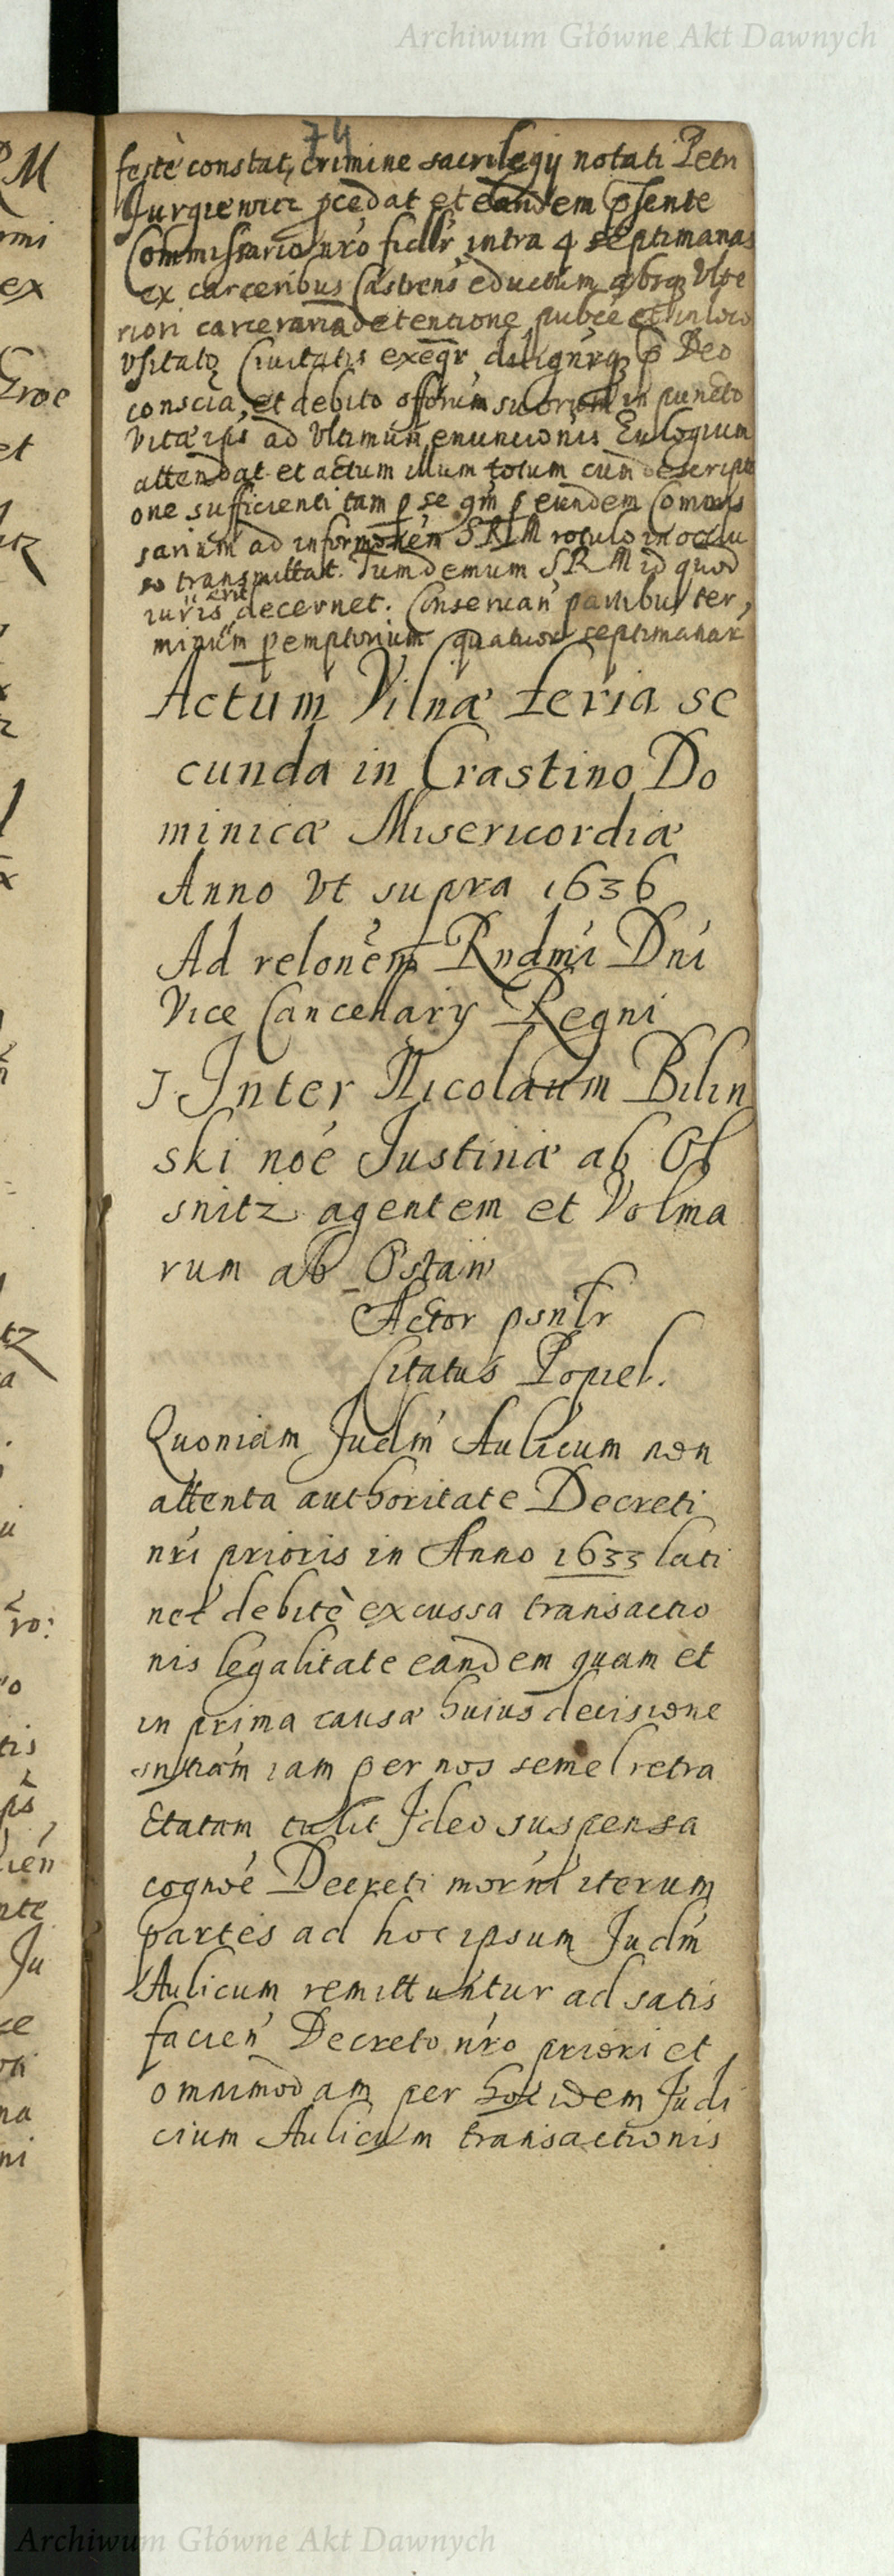 Archiwum Główne Akt Dawnych
74
festè constat, crimine sacrilegij notati Petri
Jurgiewicz pcedat et eandem psente
Commissario nro fidlr intra 4 septimanas
ex carceribus Castrens eductum absq Vlte
riori carceraria detentione publce et in loco
Vsitato Civitatis exeqr
conscia, et debito offorum suorum in puncto
vitæ ips ad Vltimum enuncionis Eulogium
attendat et actum illum totum cum descripti
one sufficienti tam p se qm p eundem Commis
sarium ad informonem SRM rotulo in occlu
so transmittat. Tum demum SRM id quod
iuris erit decernet. Conservan partibus ter,
minum pemptorium quatuor septimanar
Actum Vilnæ feria se
cunda in Crastino Do
minicæ Misericordiæ
Anno Vt supra 1636
Ad relonem Rndmi Dni
Vice Cancellarij Regni
J. Inter Nicolaum Bilin
ski noe Justinæ ab Ol
snitz agentem et Volma
rum ab Ostaw
Actor psntr
Citatus Popiel.
Quoniam Judm Aulicum non
attenta authoritate Decreti
nri prioris in Anno 1633 lati
nec debitè excussa transactio
nis legalitate eandem quam et
in prima causæ huius decisione
sntiam iam per nos semel retra
ctatam tulit Ideo suspensa
cognoe Decreti iterum
partes ad hoc ipsum Judm
Aulicum remittuntur ad satis
facien Decreto nro priori et
omnimodam per hoc idem Judi
cium Aulicum transactionis
Archiwum Główne Akt Dawnych